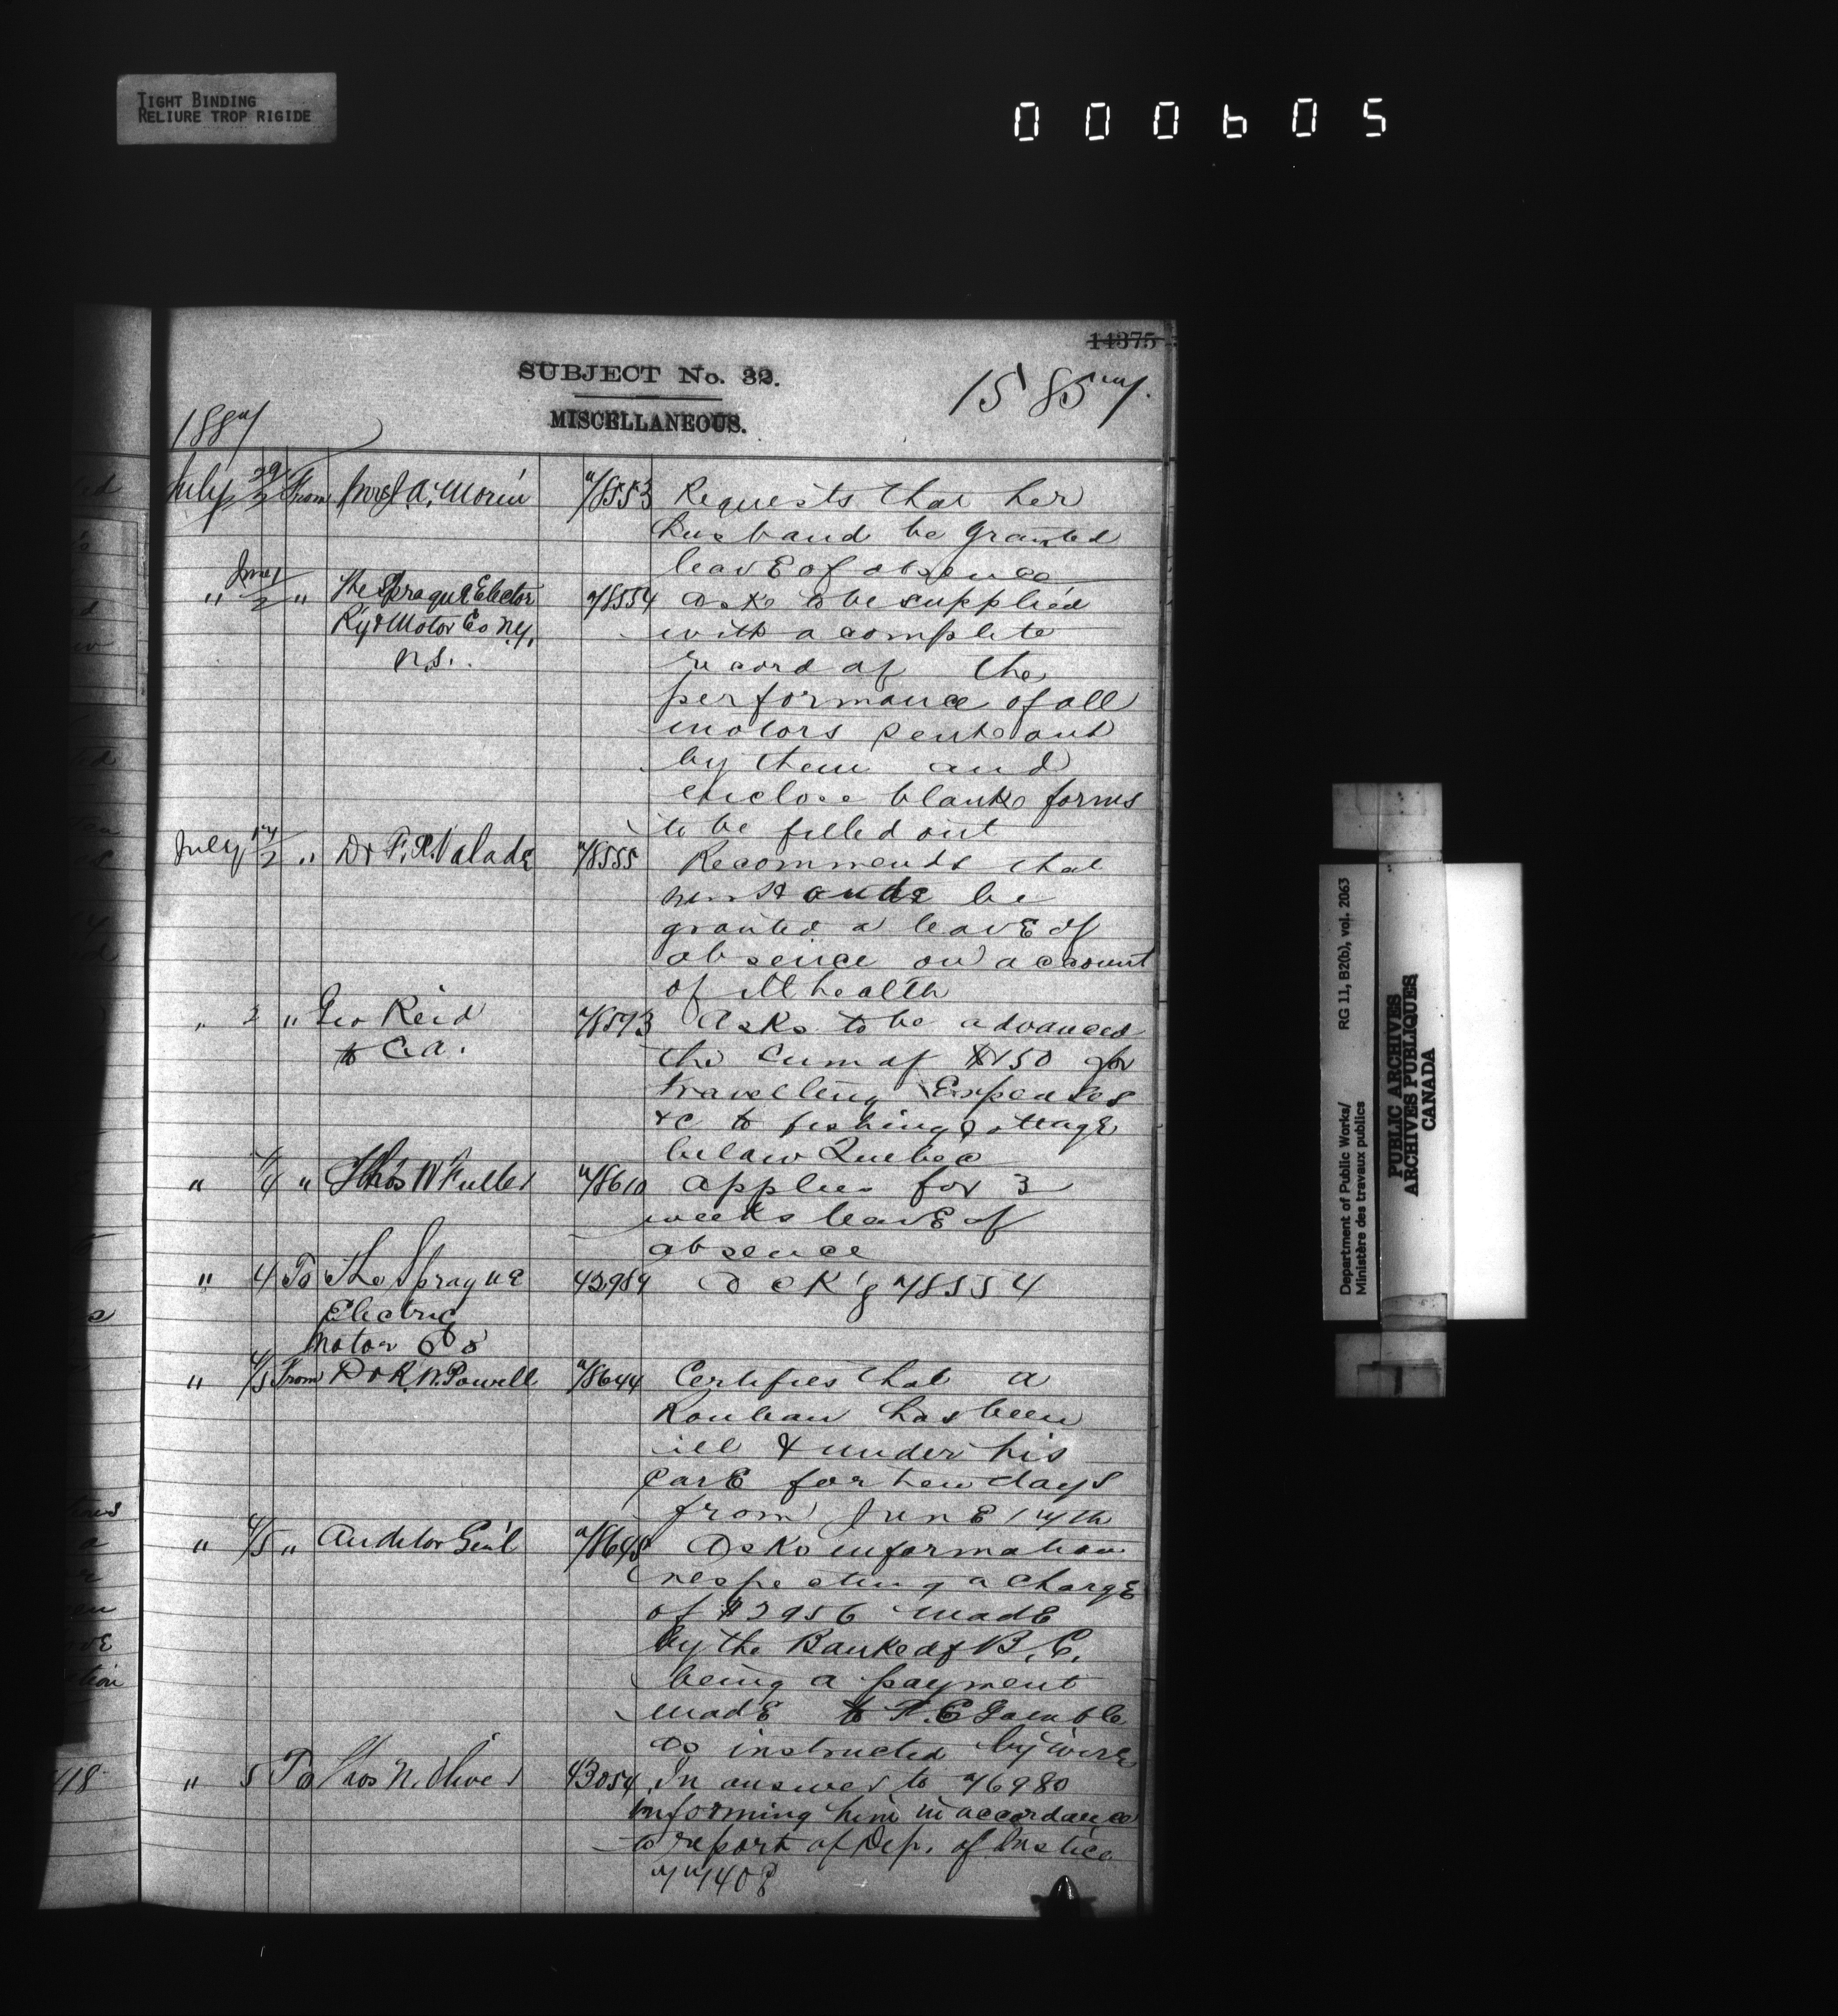 TIGHT BINDING
RELIURE TROP RIGIDE
000605
14375
SUBJECT No. 32.
15857.
MISCELLANEOUS.
1887
July 29/2 From Mrs J. A. Morin 78553 Requests that her
husband be granted
leave of absence
" June/2 " The Sprague Elector 78554 Asks to be supplied
Ry & Motor Co N.Y. with a complete
N.S. record of the
performance of all
motors sent out
by them and
enclose blank forms
to be filled out
July 17/2 " Dr F. X. Valade 78555 Recommends that
be
granted a leave of
absence on account
of ill health
" 2 " Geo Reid 78573 Asks to be advanced
to C.A. the sum of $150 for
travelling Expenses
&c to fishing
below Quebec
" 4/4 " Thos W Fuller 78610 Applies for 3
weeks leave of
absence
" 4 To The Sprague 42984 Ack'g 78554
Electric
Motor Co
" 4/5 From Dr R. W. Powell 78644 Certifies that A
Rouleau has been
ill & under his
care for ten days
from June 17th
" 4/5 " Auditor Gen'l 78645 Asks information
respecting a charge
of $2956 made
by the Bank of B. C.
being a payment
made to F. C Gamble
as instructed by wire
" 5 To Thos N. Oliver 43054 In answer to 76980
informing him in accordance
to report of Dep. of Justice
77408
418
Department of Public Works/
Ministère des travaux publics
RG 11, B2(b), vol. 2063
PUBLIC ARCHIVES
ARCHIVES PUBLIQUES
CANADA